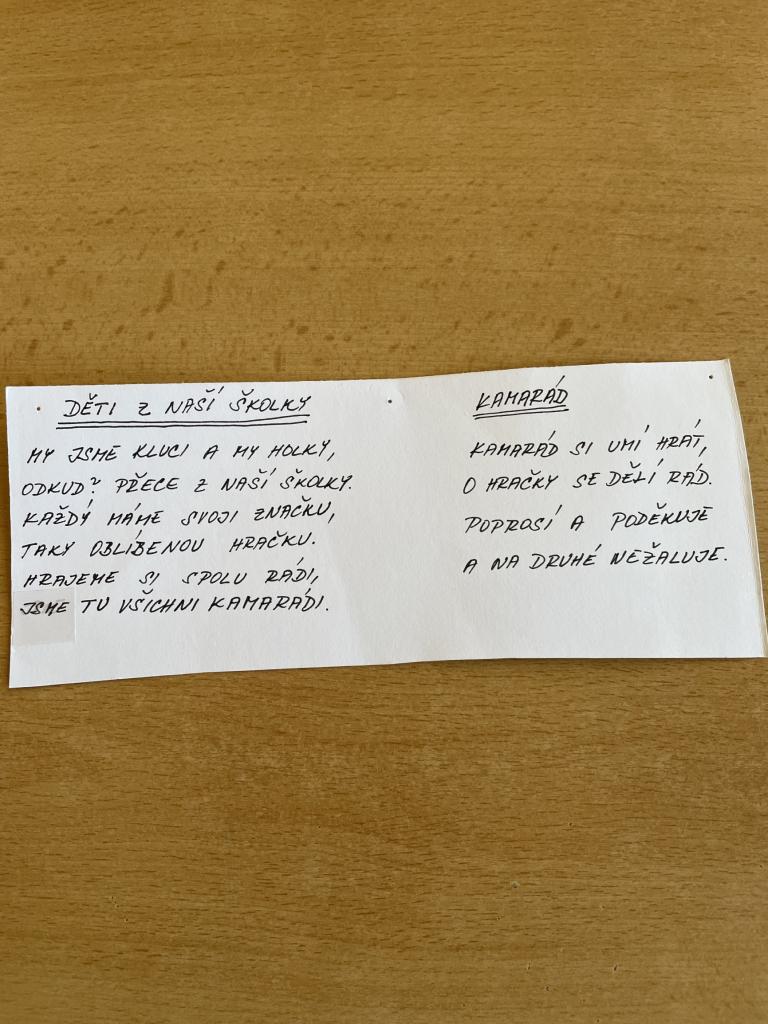 DĚTI Z NAŠÍ ŠKOLKY
MY JSME KLUCI A MY HOLKY,
ODKUD? PŘECE Z NAŠÍ ŠKOLKY.
KAŽDÝ MÁME SVOJI ZNAČKU,
TAKY OBLÍBENOU HRAČKU.
HRAJEME SI SPOLU RÁDI,
JSME TU VŠICHNI KAMARÁDI.
KAMARÁD
KAMARÁD SI UMÍ HRÁT,
O HRAČKY SE DĚLÍ RÁD.
POPROSÍ A PODĚKUJE
A NA DRUHÉ NEŽALUJE.